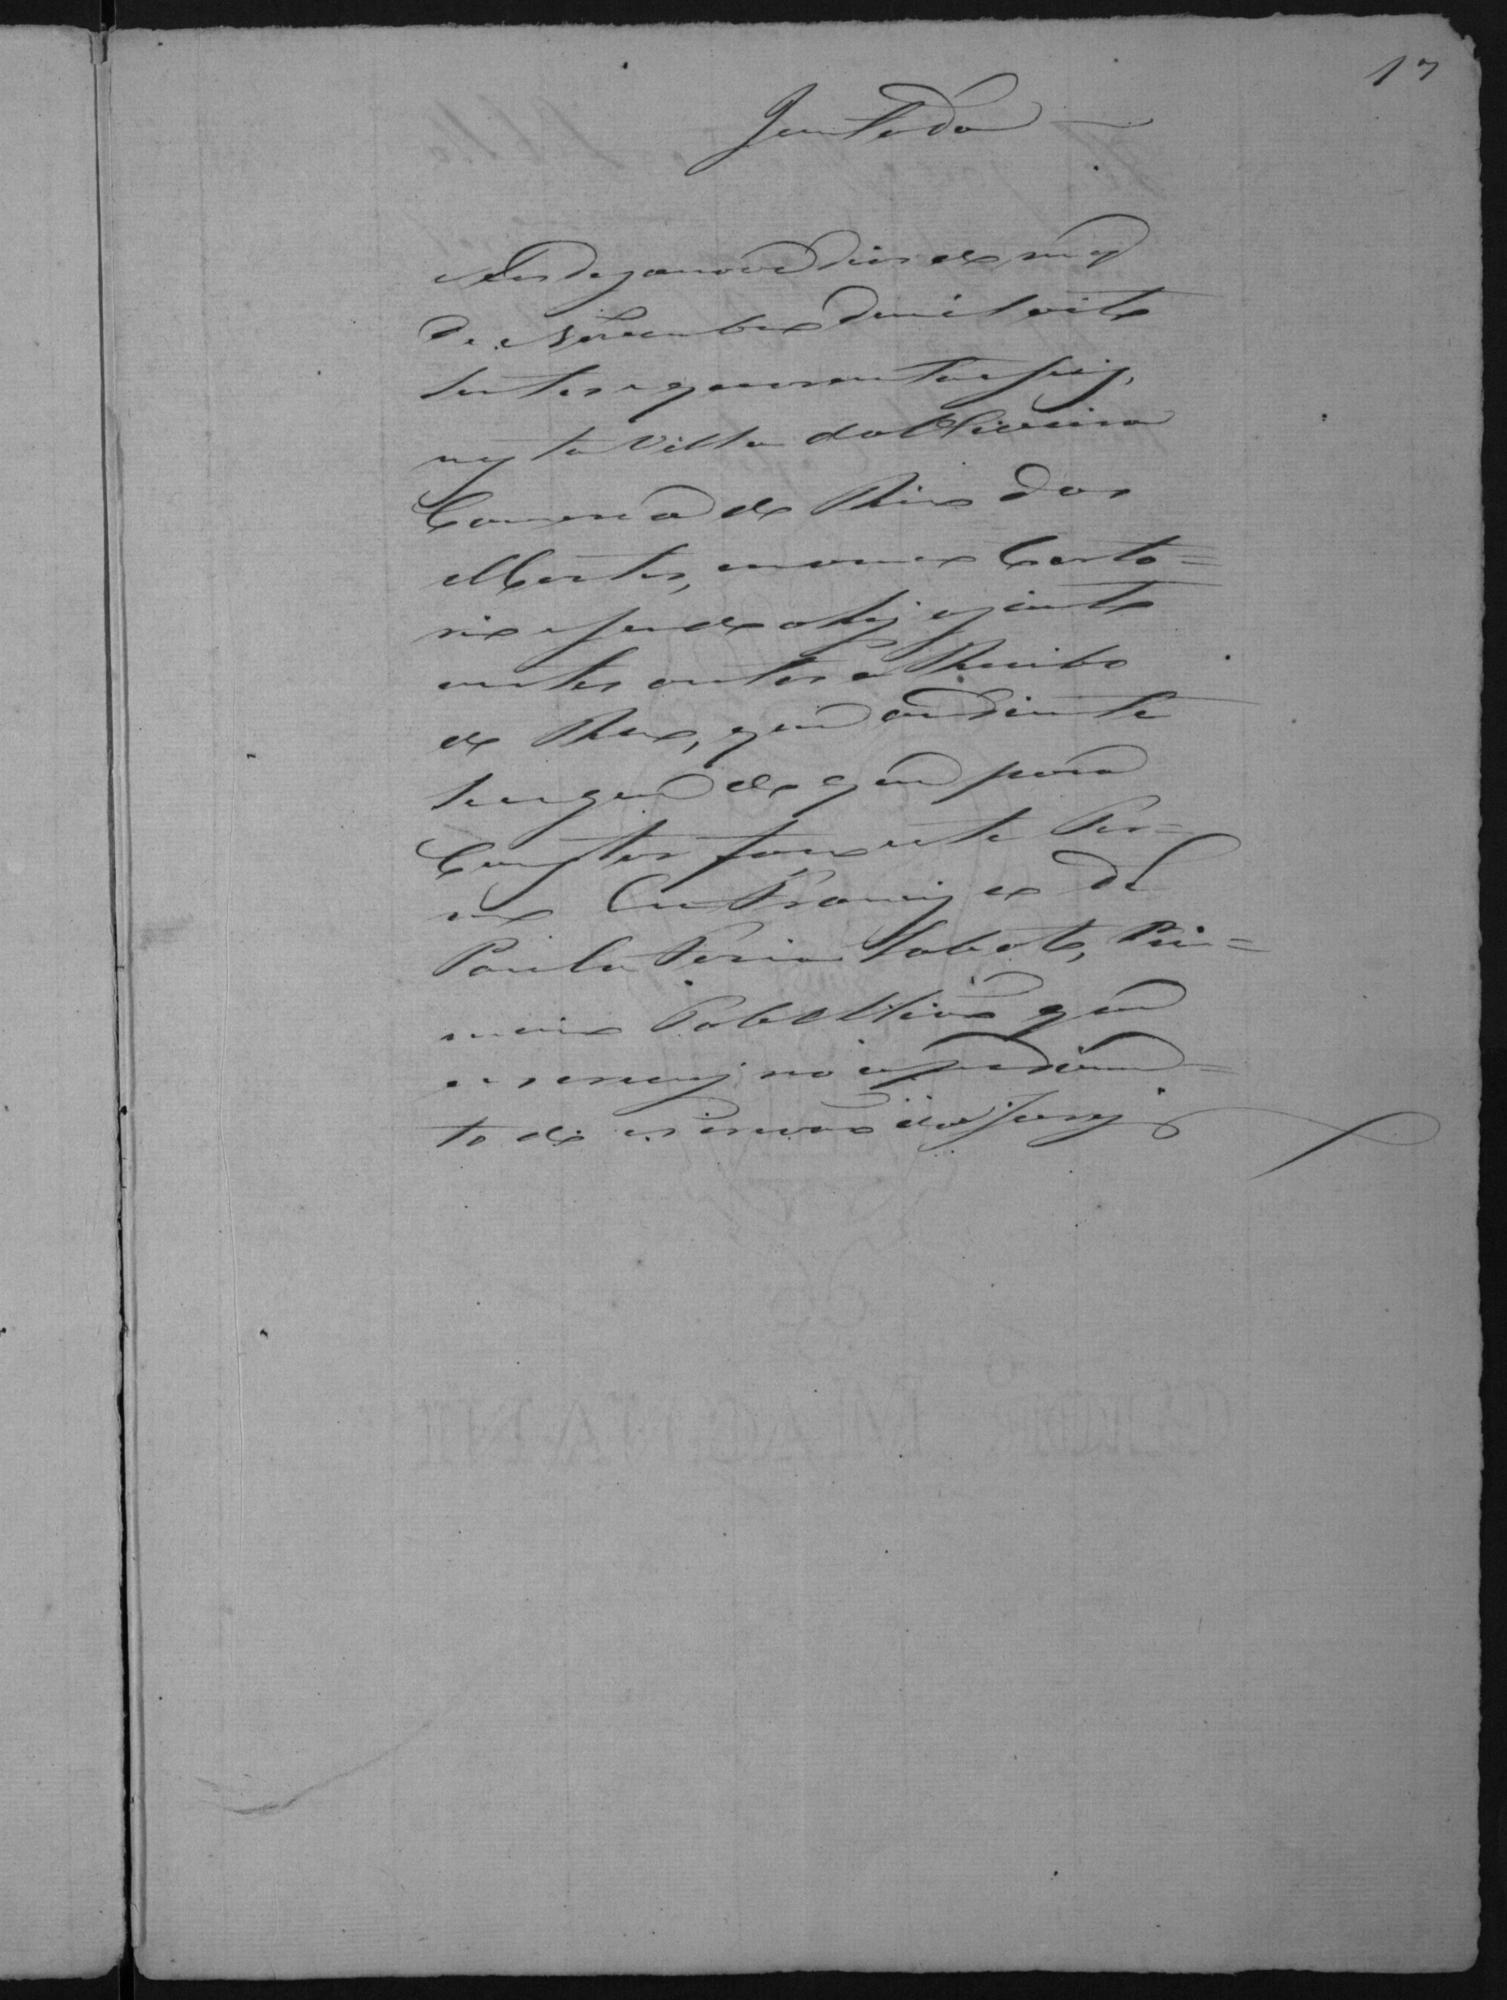 17
Juntada
Aos dezanove dias do mez
de Novembro de mil oito
centos e quarenta e seis,
nesta Villa da Oliveira
Comarca do Rio das
Mortes, em meu Carto=
rio sendo ahi ajunte
estes autos o Recibo
do Reo, que ao diante
se segue do que para
Constar faço este Ter=
mo Eu Francisco de
Paula Lobato, Pri=
meiro Tabelliaõ que
escrevy no impedimen=
to do escrivaõ do Jury